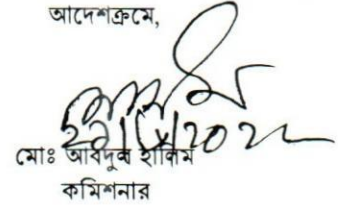 আদেশক্রমে,
মোঃ আবদুল হালিম
কমিশনার